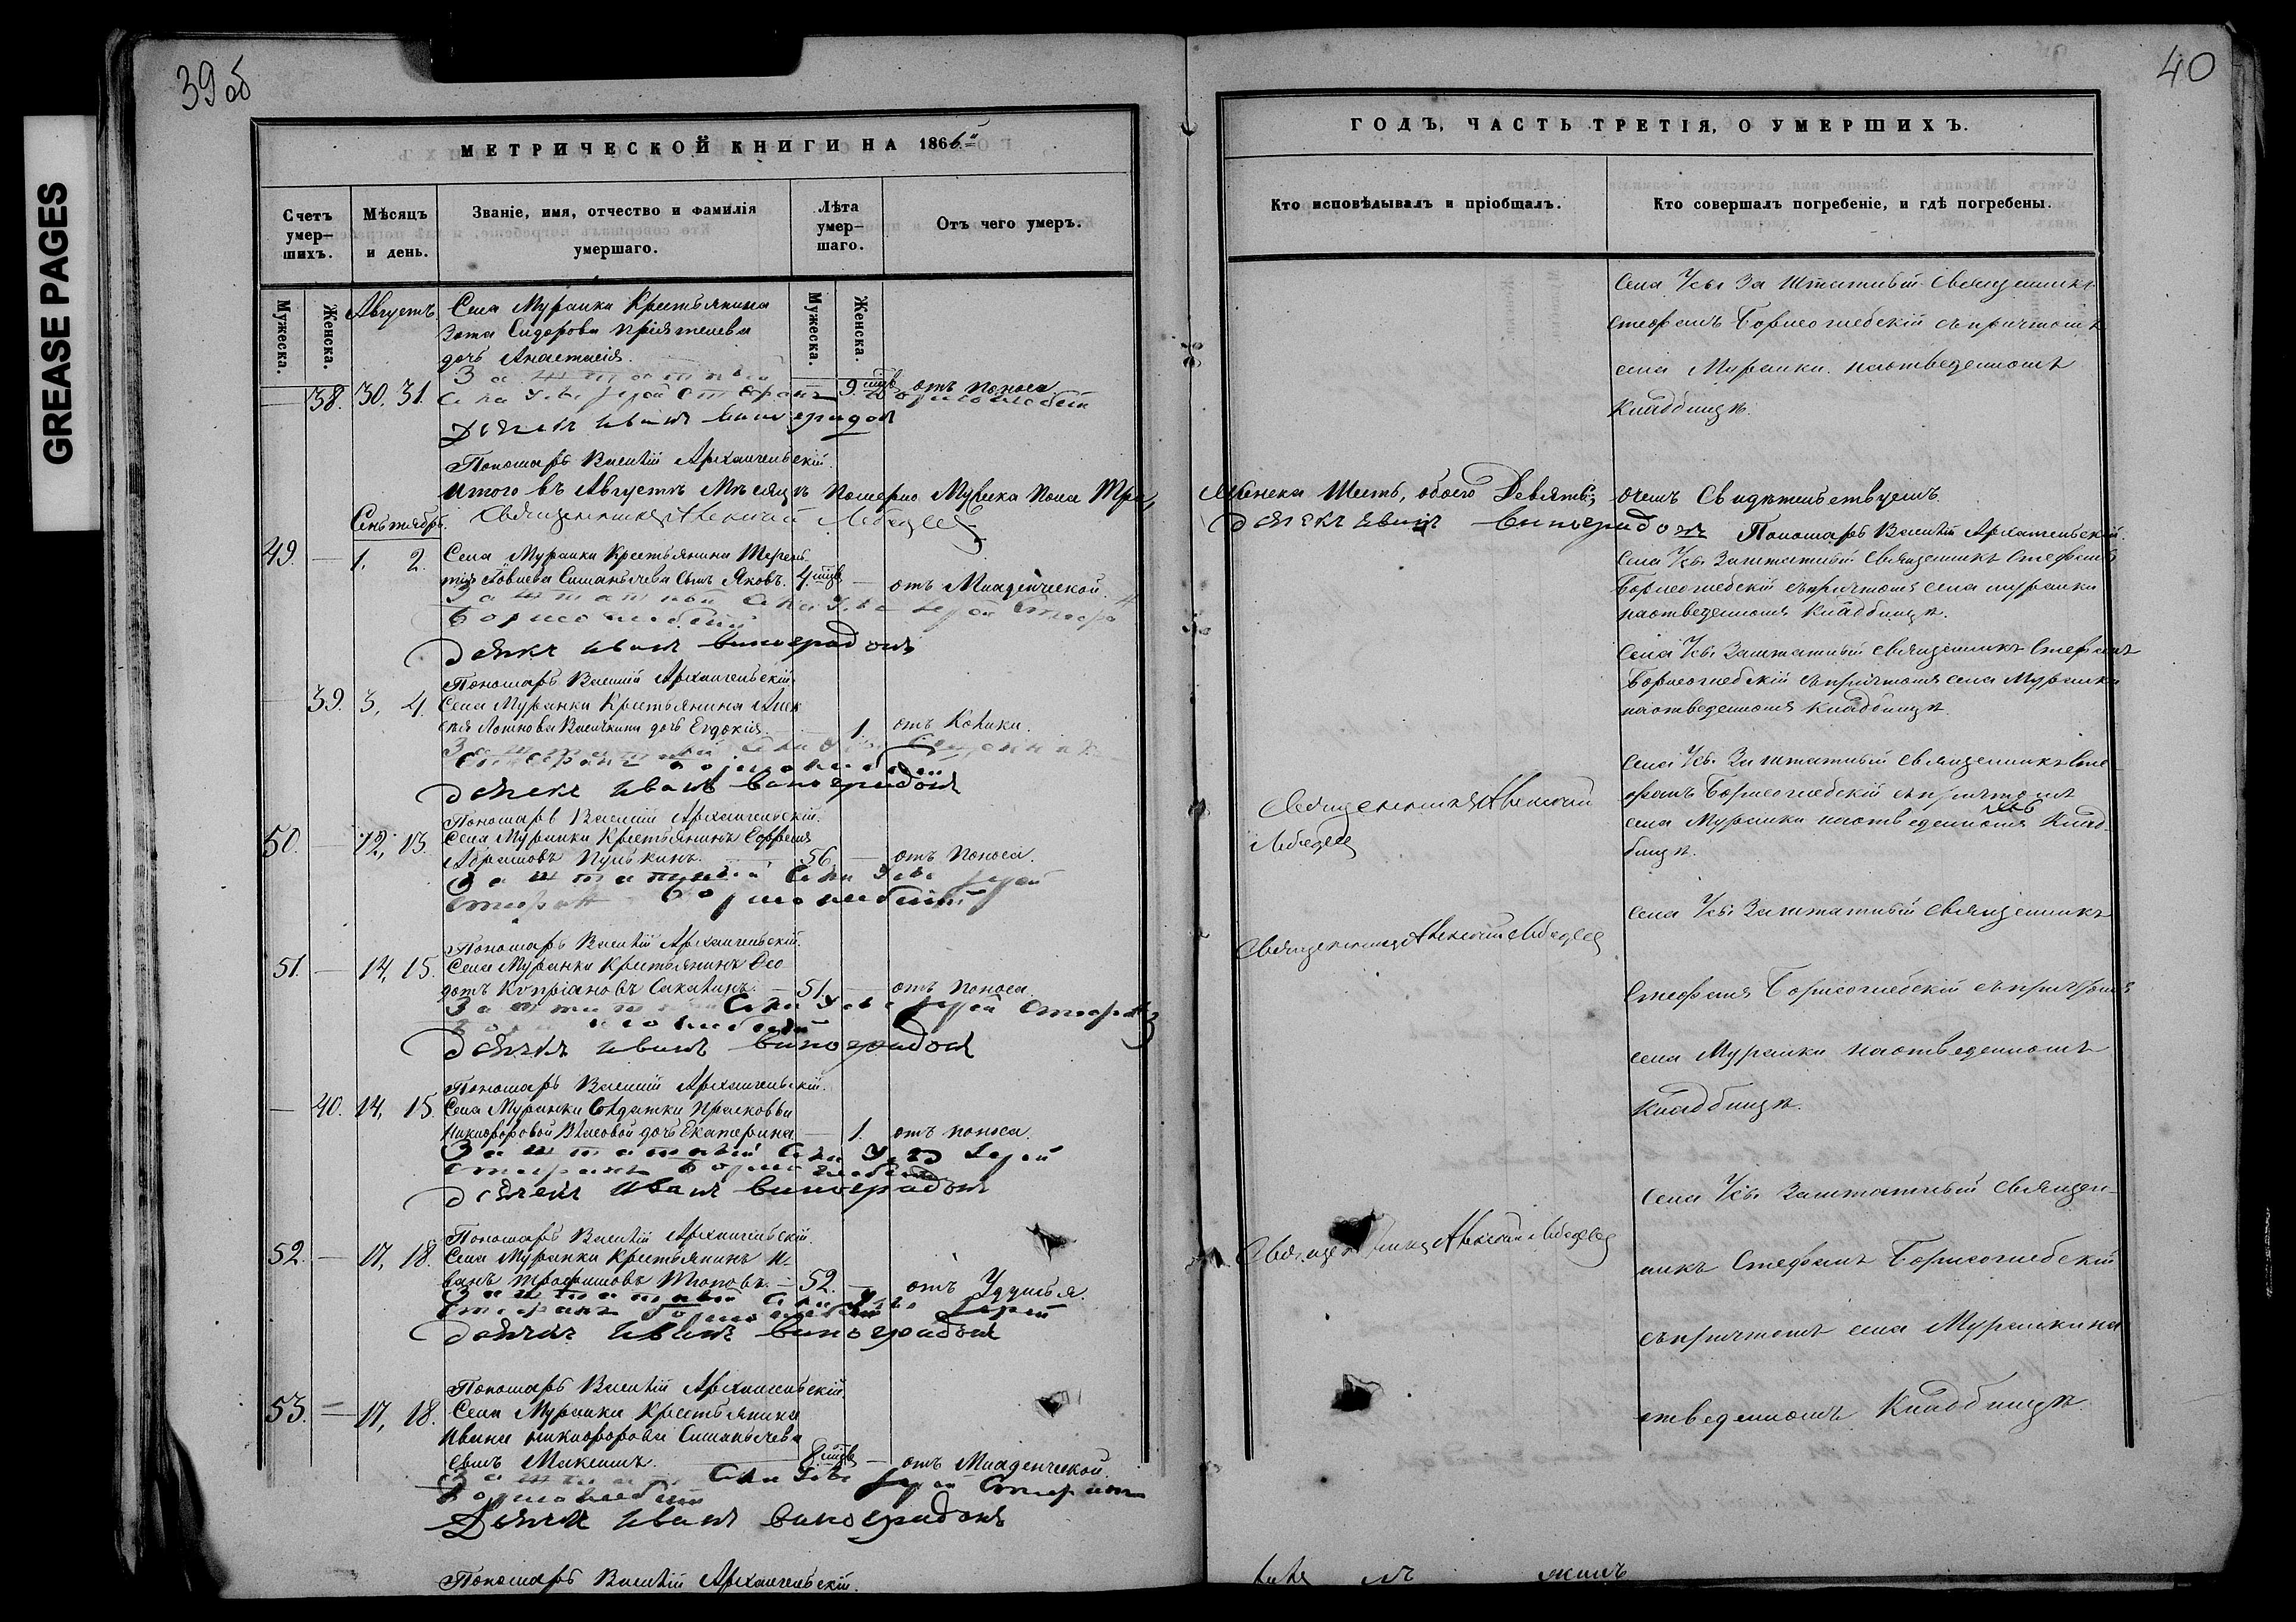 GREASE PAGES
39 об
МЕТРИЧЕСКОЙ КНИГИ НА 1866й
Счетъ умер-
шихъ.
Мѣсяцъ
и день.
Званіе, имя, отчество и фамилія
умершаго.
Лѣта
умер-
шаго.
Отъ чего умеръ.
Мужеска.
Женска.
Мужеска.
Женска.
Августъ
Села Муранки Крестьянина
Зота Сидорова Пріятелева
дочь Анастасія.
38. 30. 31. 9. мцв отъ поноса
Дьячекъ Иванъ Виноградовъ
Пономарь Василій Архангельскій.
Итого въ Августѣ Мѣсяцѣ Померло Мужска Пола Три,
Сентябрь. Священникъ Алексѣй Лебедев
49. — 1. 2. Села Муранки Крестьянина Терен
тія Сишанычева Сынъ Яковъ. 4 мцв — отъ Младенческой.
Дьячекъ Иванъ Виноградовъ
Пономарь Василій Архангельскій
39. 3, 4. Села Муранки Крестьянина Алек
сѣя дочь Евдокія. 1. отъ Колики.
Стефанъ Борисоглебскій
Дьячекъ Иванъ Виноградовъ
Пономарь Василій Архангельскій.
50. — 12, 13. Села Муранки Крестьянинъ Ефремъ
Абрамовъ Пулькинъ. 56 — отъ поноса.
Заштатный Села Усы Іерей
Стефанъ Борисоглебскій
Пономарь Василій Архангельскій.
51. — 14, 15. Села Муранки Крестьянинъ Ѳео
дотъ Кипріановъ Сакалинъ. — 51. — отъ поноса.
Заштатный Села Усы Іерей Стефанъ
Борисоглебскій
Дьячекъ Иванъ Виноградовъ
Пономарь Василій Архангельскій.
— 40. 14, 15. Села Муранки Солдатки Прасковьи
Никифоровой Власовой дочь Екатерина — 1. отъ поноса.
Заштатный Села Усы Іерей
Стефанъ Борисоглебскій
Дьячекъ Иванъ Виноградовъ
Пономарь Василій Архангельскій.
52. — 17, 18. Села Муранки Крестьянинъ И-
ванъ Трофимовъ — 52. — отъ Удушья.
Заштатный Села Усы Іерей
Стефанъ Борисоглебскій
Дьячекъ Иванъ Виноградовъ
Пономарь Василій Архангельскій.
53. — 17, 18. Села Муранки Крестьянина
Ивана Никифорова Сишанычева
сынъ Максимъ. 8 мцв — отъ Младенческой.
Села Усы Іерей Стефанъ
Борисоглебскій
Дьячекъ Иванъ Виноградовъ
Пономарь Василій Архангельскій.
40
ГОДЪ, ЧАСТЬ ТРЕТІЯ, О УМЕРШИХЪ.
Кто исповѣдывалъ и пріобщалъ.
Кто совершалъ погребеніе, и гдѣ погребены.
Села Усы Заштатный Священникъ
Стефанъ Борисоглебскій съ причтомъ
села Муранки на отведенномъ
Кладбищѣ.
Женска Шесть, обоего Девять; о чемъ Свидѣтельствуемъ
Дьячекъ Иванъ Виноградовъ Пономарь Василій Архангельскій.
Села Усы Заштатный Священникъ Стефанъ
Борисоглебскій съ причтомъ села Муранки
на отведенномъ Кладбищѣ.
Села Усы Заштатный Священникъ Стефанъ
Борисоглебскій съ причтомъ села Муранки
на отведенномъ Кладбищѣ.
Священникъ Алексѣй
Лебедев
Села Усы Заштатный Священникъ Сте
фанъ Борисоглебскій съ причтомъ
села Муранки на отведенномъ Клад-
бищѣ.
Священникъ Алексѣй Лебедев
Села Усы Заштатный Священникъ
Стефанъ Борисоглебскій съ причтомъ
села Муранки на отведенномъ
Кладбищѣ.
Священникъ Алексѣй Лебедев
Села Усы Заштатный Священ-
никъ Стефанъ Борисоглебскій
съ причтомъ села Муранки на
отведенномъ Кладбищѣ.